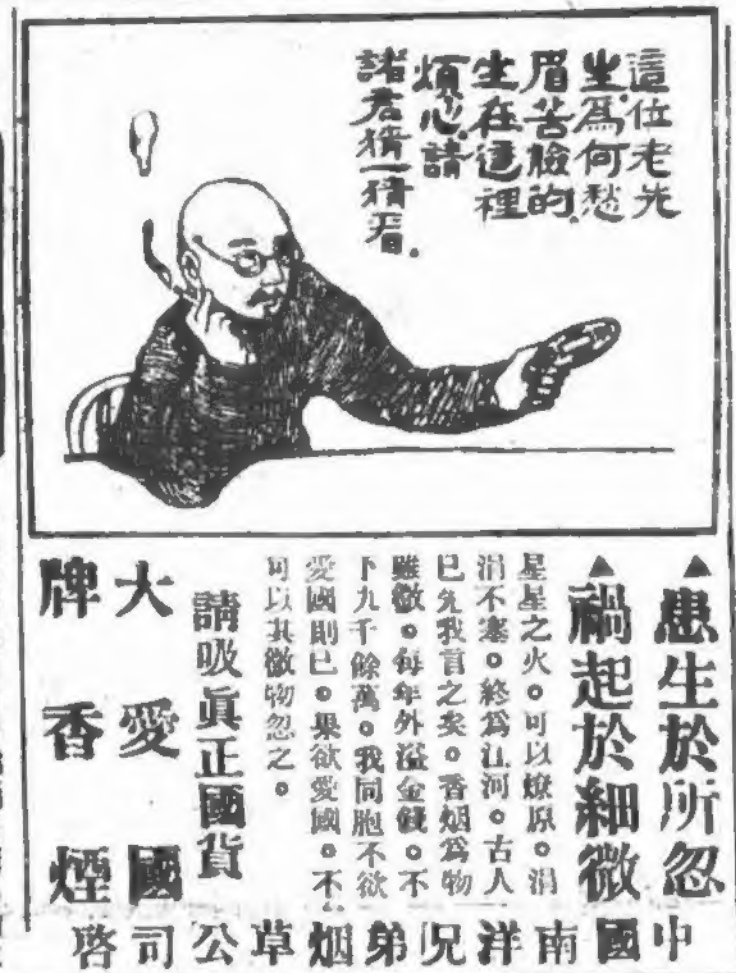 這位老先
生爲何愁
眉苦臉的.
坐在這裡
煩心.請
諸君猜一猜看.
▲患生於所忽
▲禍起於細微
星星之火。可以燎原。涓
涓不塞。終爲江河。古人
已先我言之矣。香烟爲物
雖微。每年外溢金錢。不
下九千餘萬。我同胞不欲
愛國則已。果欲愛國。不
可以其微物忽之。
請吸眞正國貨
大愛國
牌香煙
中國南洋兄弟烟草公司啓